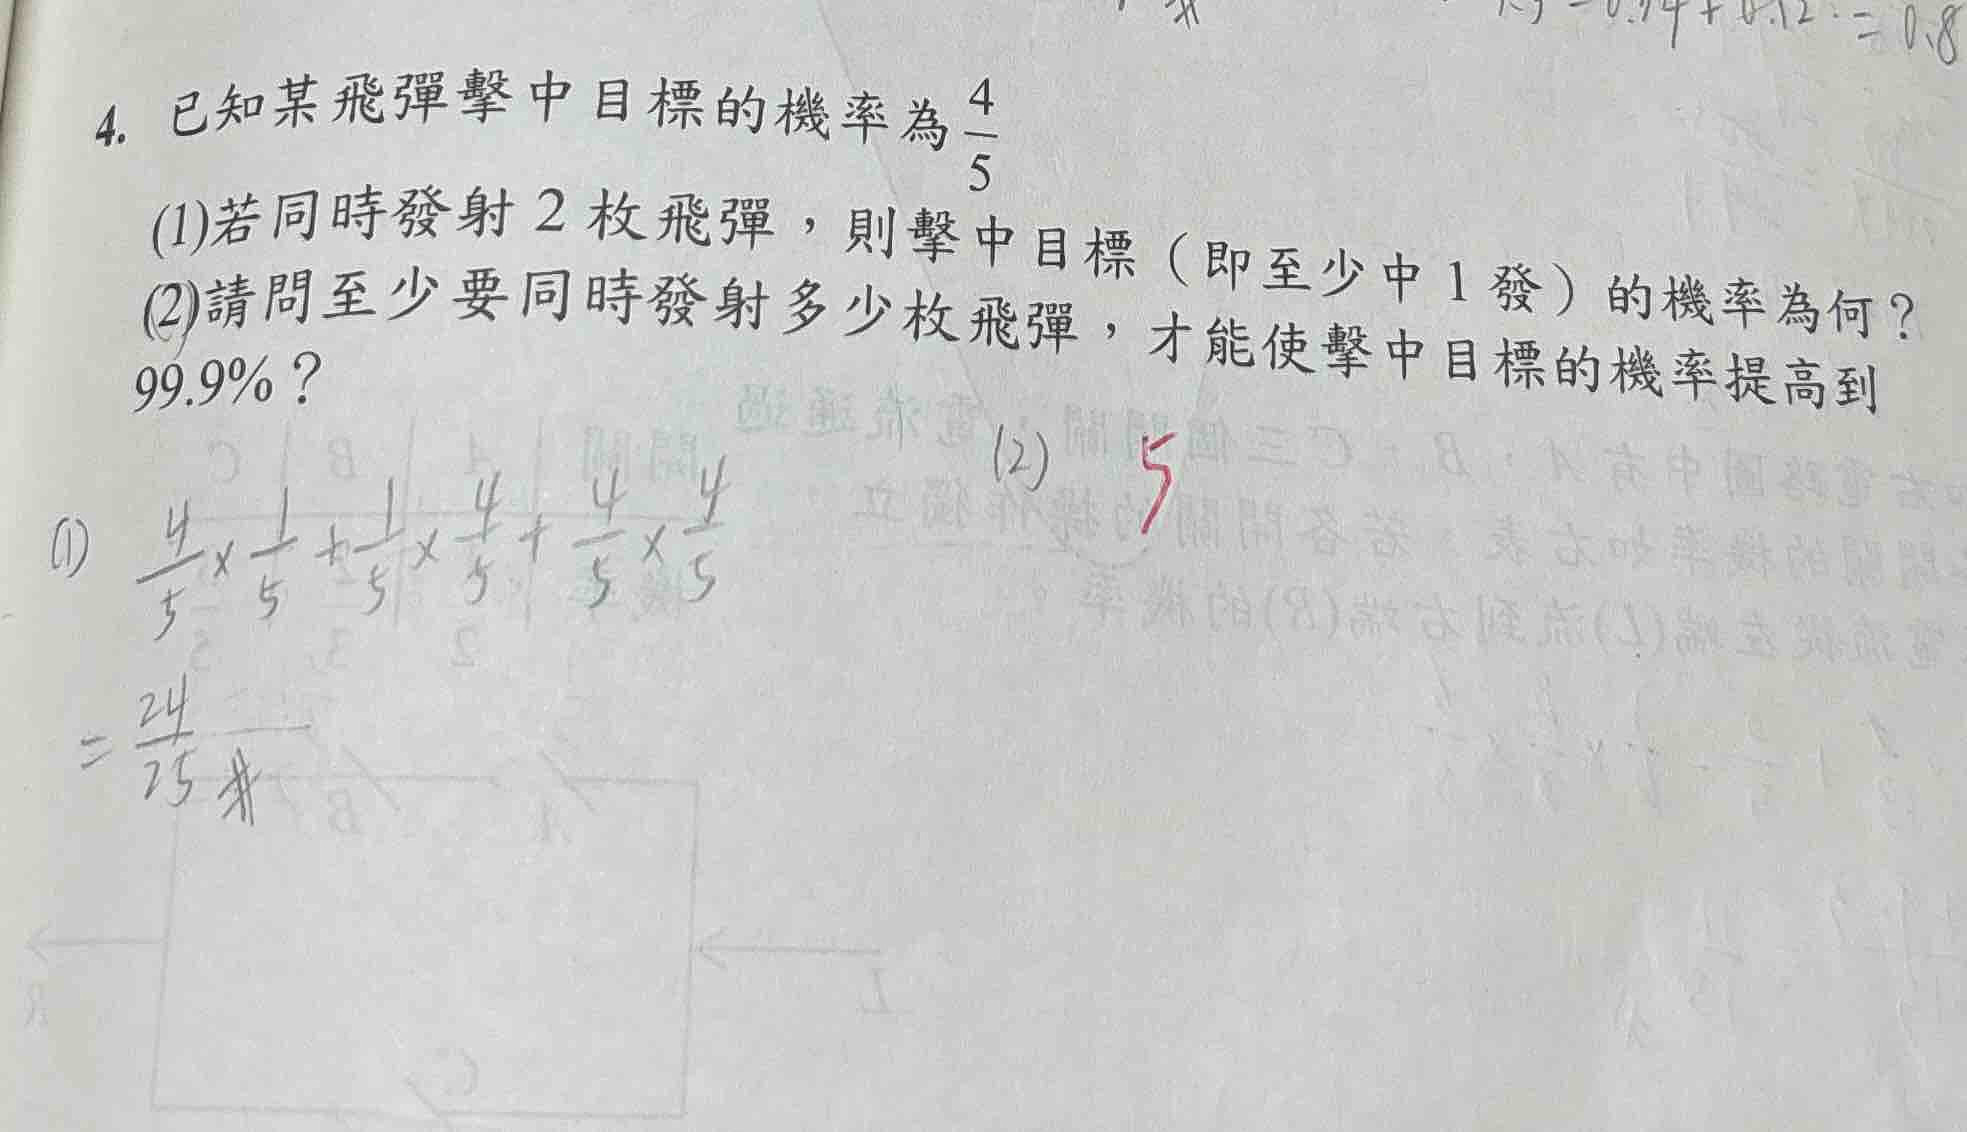 = 0.8
4. 已知某飛彈擊中目標的機率為 4/5
(1)若同時發射 2 枚飛彈，則擊中目標（即至少中 1 發）的機率為何？
(2)請問至少要同時發射多少枚飛彈，才能使擊中目標的機率提高到
99.9%？
(1) 4/5 × 1/5 + 1/5 × 4/5 + 4/5 × 4/5
(2) 5
= 24/25